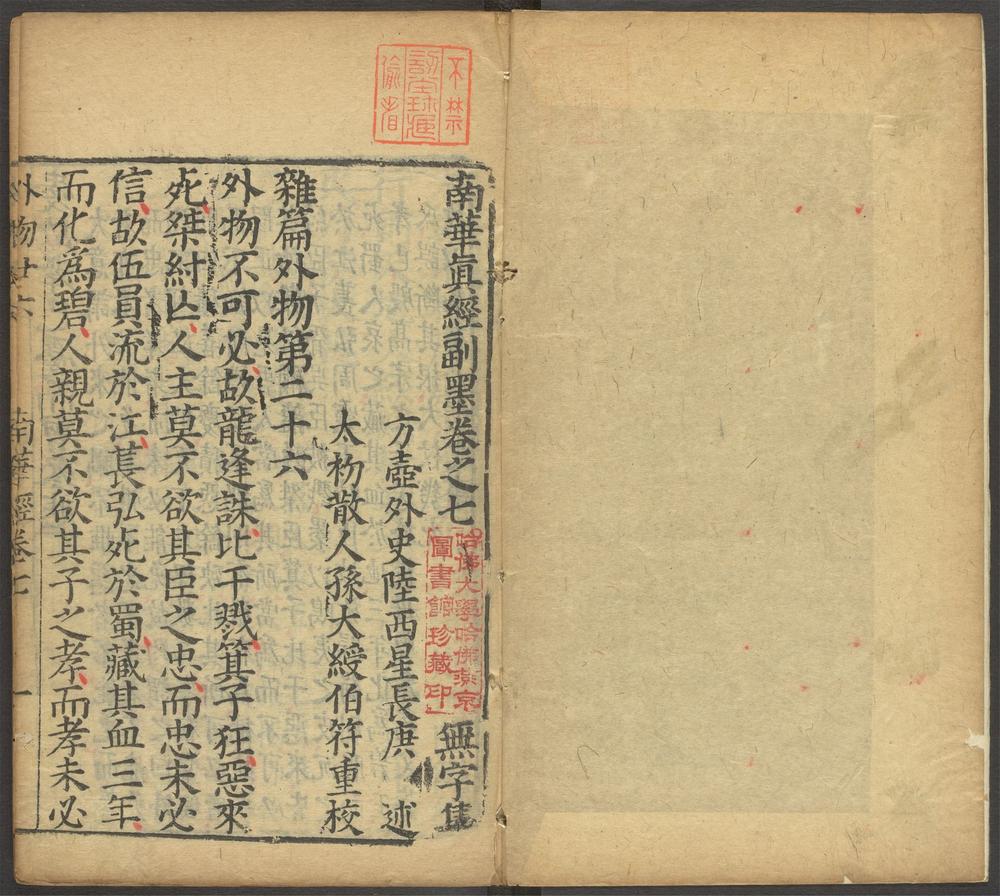 南華眞經副墨卷之七 無字集
方壺外史陸西星長庚 述
太初散人孫大綬伯符重校
雜篇外物第二十六
外物不可必故龍逄誅比干戮箕子狂惡來
死桀紂亡人主莫不欲其臣之忠而忠未必
信故伍員流於江萇弘死於蜀藏其血三年
而化爲碧人親莫不欲其子之孝而孝未必
外物廿六 南華經卷七 一
哈佛大學哈佛燕京
圖書館珍藏印